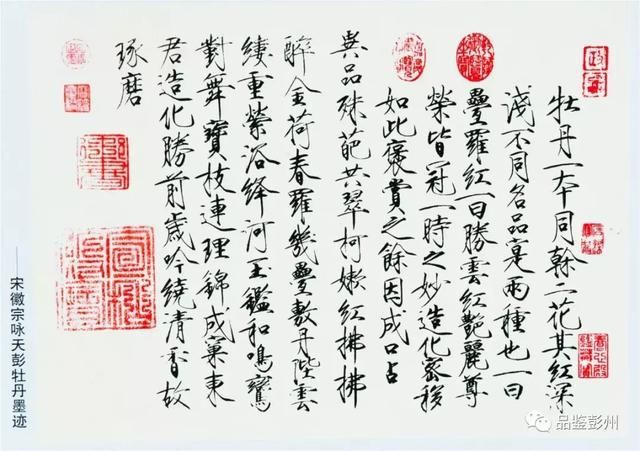 牡丹一本同幹二花其紅深
淺不同名品寔兩種也一曰
疊羅紅一曰勝雲紅艷麗尊
榮皆冠一時之妙造化密移
如此褒賞之餘因成口占
異品殊葩共翠柯嫩紅拂拂
醉金荷春羅幾疊敷丹陛雲
縷重縈浴絳河玉鑑和鳴鸞
對舞寶枝連理錦成窠東
君造化勝前歲吟繞清香故
琢磨
——宋徽宗咏天彭牡丹墨迹
品鉴彭州